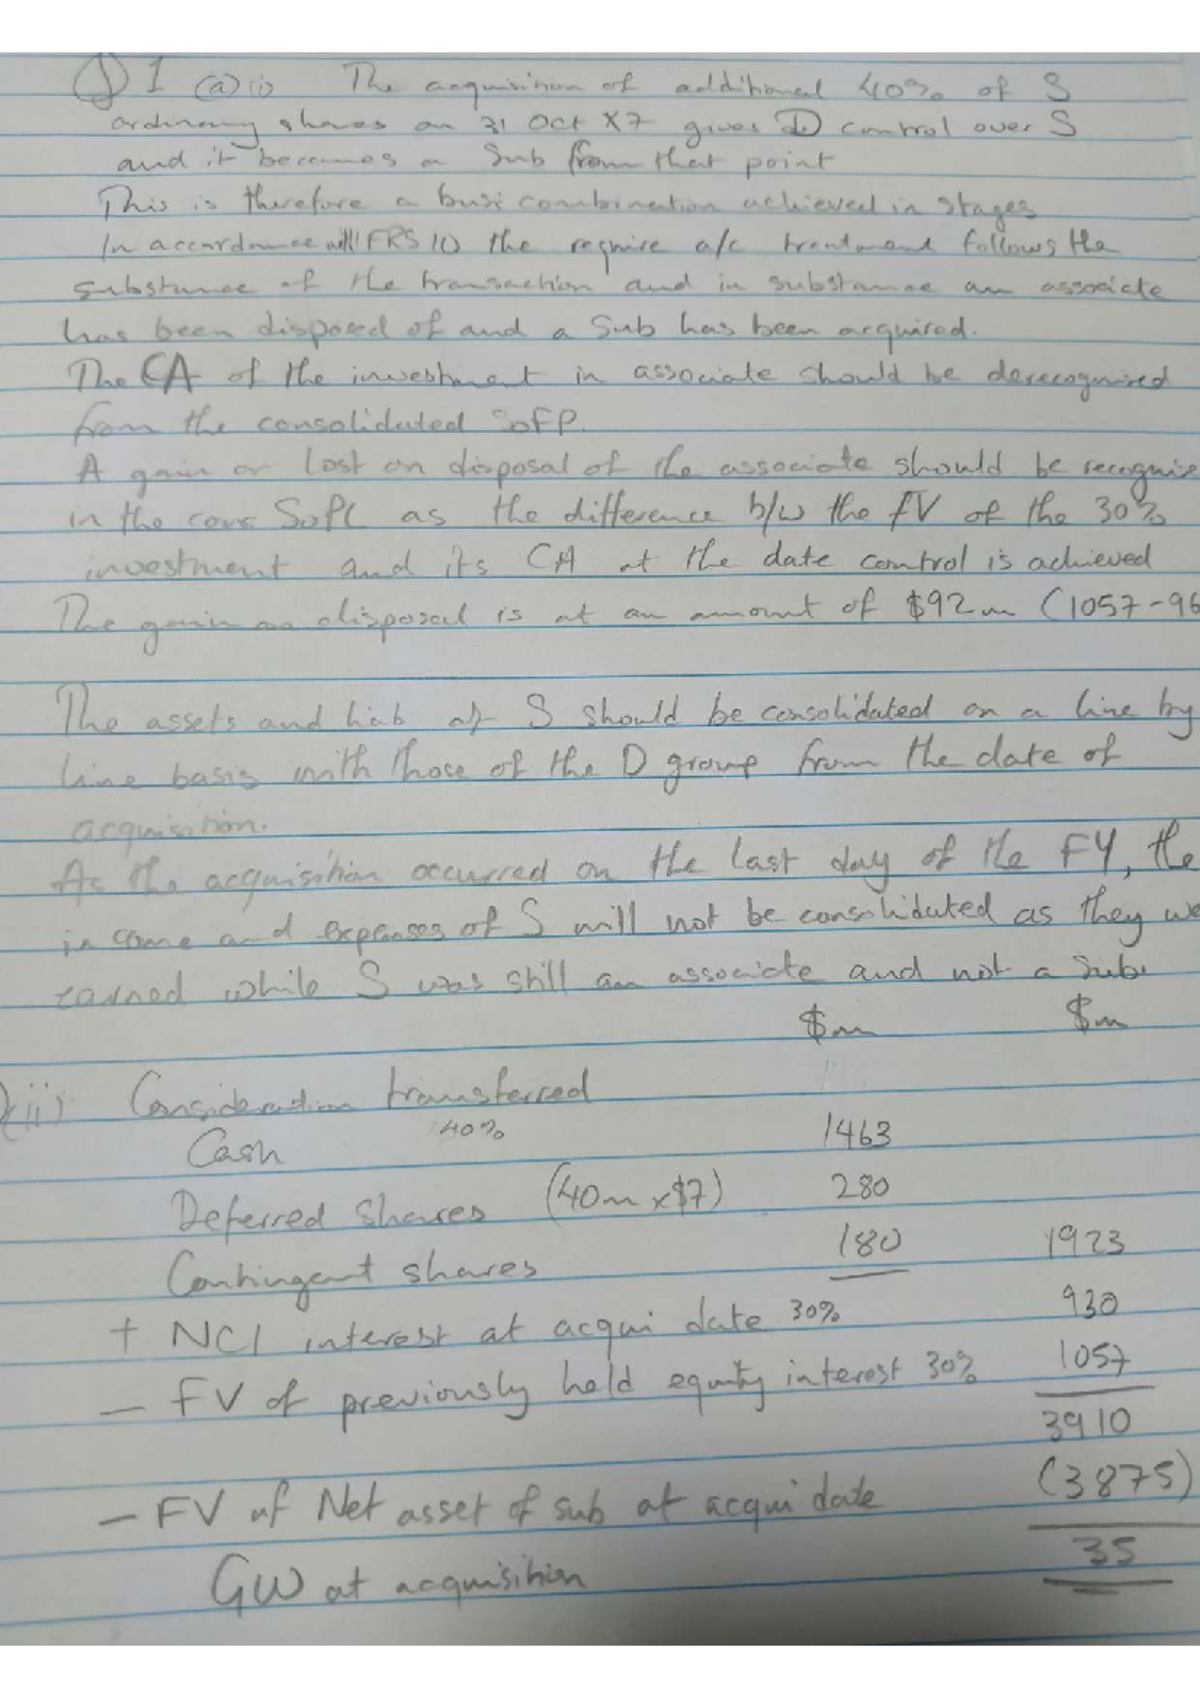 Q1 (a)(i) The acquisition of additional 40% of S
ordinary shares on 31 Oct X7 gives D control over S
and it becomes a Sub from that point
This is therefore a busi combination achieved in stages
In accordance with IFRS 10 the require a/c treatment follows the
substance of the transaction and in substance an associate
has been disposed of and a Sub has been acquired.
The CA of the investment in associate should be derecognised
from the consolidated SoFP.
A gain or lost on disposal of the associate should be recognise
in the cons. SoPL as the difference b/w the FV of the 30%
investment and its CA at the date control is achieved
The gain on disposal is at an amount of $92m (1057-96
The assets and liab of S should be consolidated on a line by
line basis with those of the D group from the date of
acquisition.
As the acquisition occurred on the last day of the FY, the
income and expenses of S will not be consolidated as they we
earned while S was still an associate and not a Sub.
$m $m
(ii) Consideration transferred
Cash 40% 1463
Deferred shares (40m x $7) 280
Contingent shares 180 1923
+ NCI interest at acqui date 30% 930
— FV of previously held equity interest 30% 1057
3910
— FV of Net asset of sub at acqui date (3875)
GW at acquisition 35